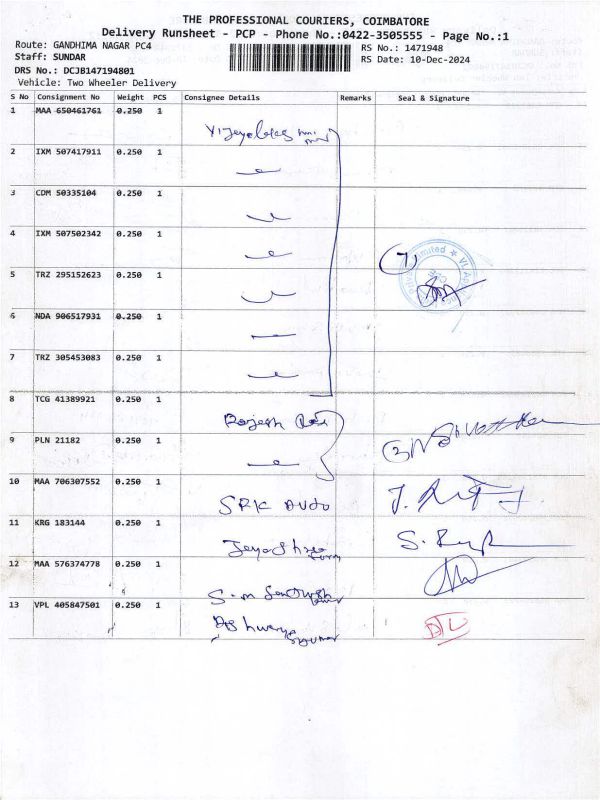 THE PROFESSIONAL COURIERS, COIMBATORE
Delivery Runsheet - PCP - Phone No.:0422-3505555 - Page No.:1
Route: GANDHIMA NAGAR PC4
RS No.: 1471948
Staff: SUNDAR
RS Date: 10-Dec-2024
DRS No.: DCJB147194801
Vehicle: Two Wheeler Delivery
S No Consignment No Weight PCS Consignee Details Remarks Seal & Signature
1 MAA 650461761 0.250 1
2 IXM 507417911 0.250 1
3 CDM 50335104 0.250 1
4 IXM 507502342 0.250 1
7
5 TRZ 295152623 0.250 1
6 NDA 906517931 0.250 1
7 TRZ 305453083 0.250 1
8 TCG 41389921 0.250 1
Rajesh
9 PLN 21182 0.250 1
10 MAA 706307552 0.250 1
SRK Auto
11 KRG 183144 0.250 1
12 MAA 576374778 0.250 1
S.m
13 VPL 405847501 0.250 1